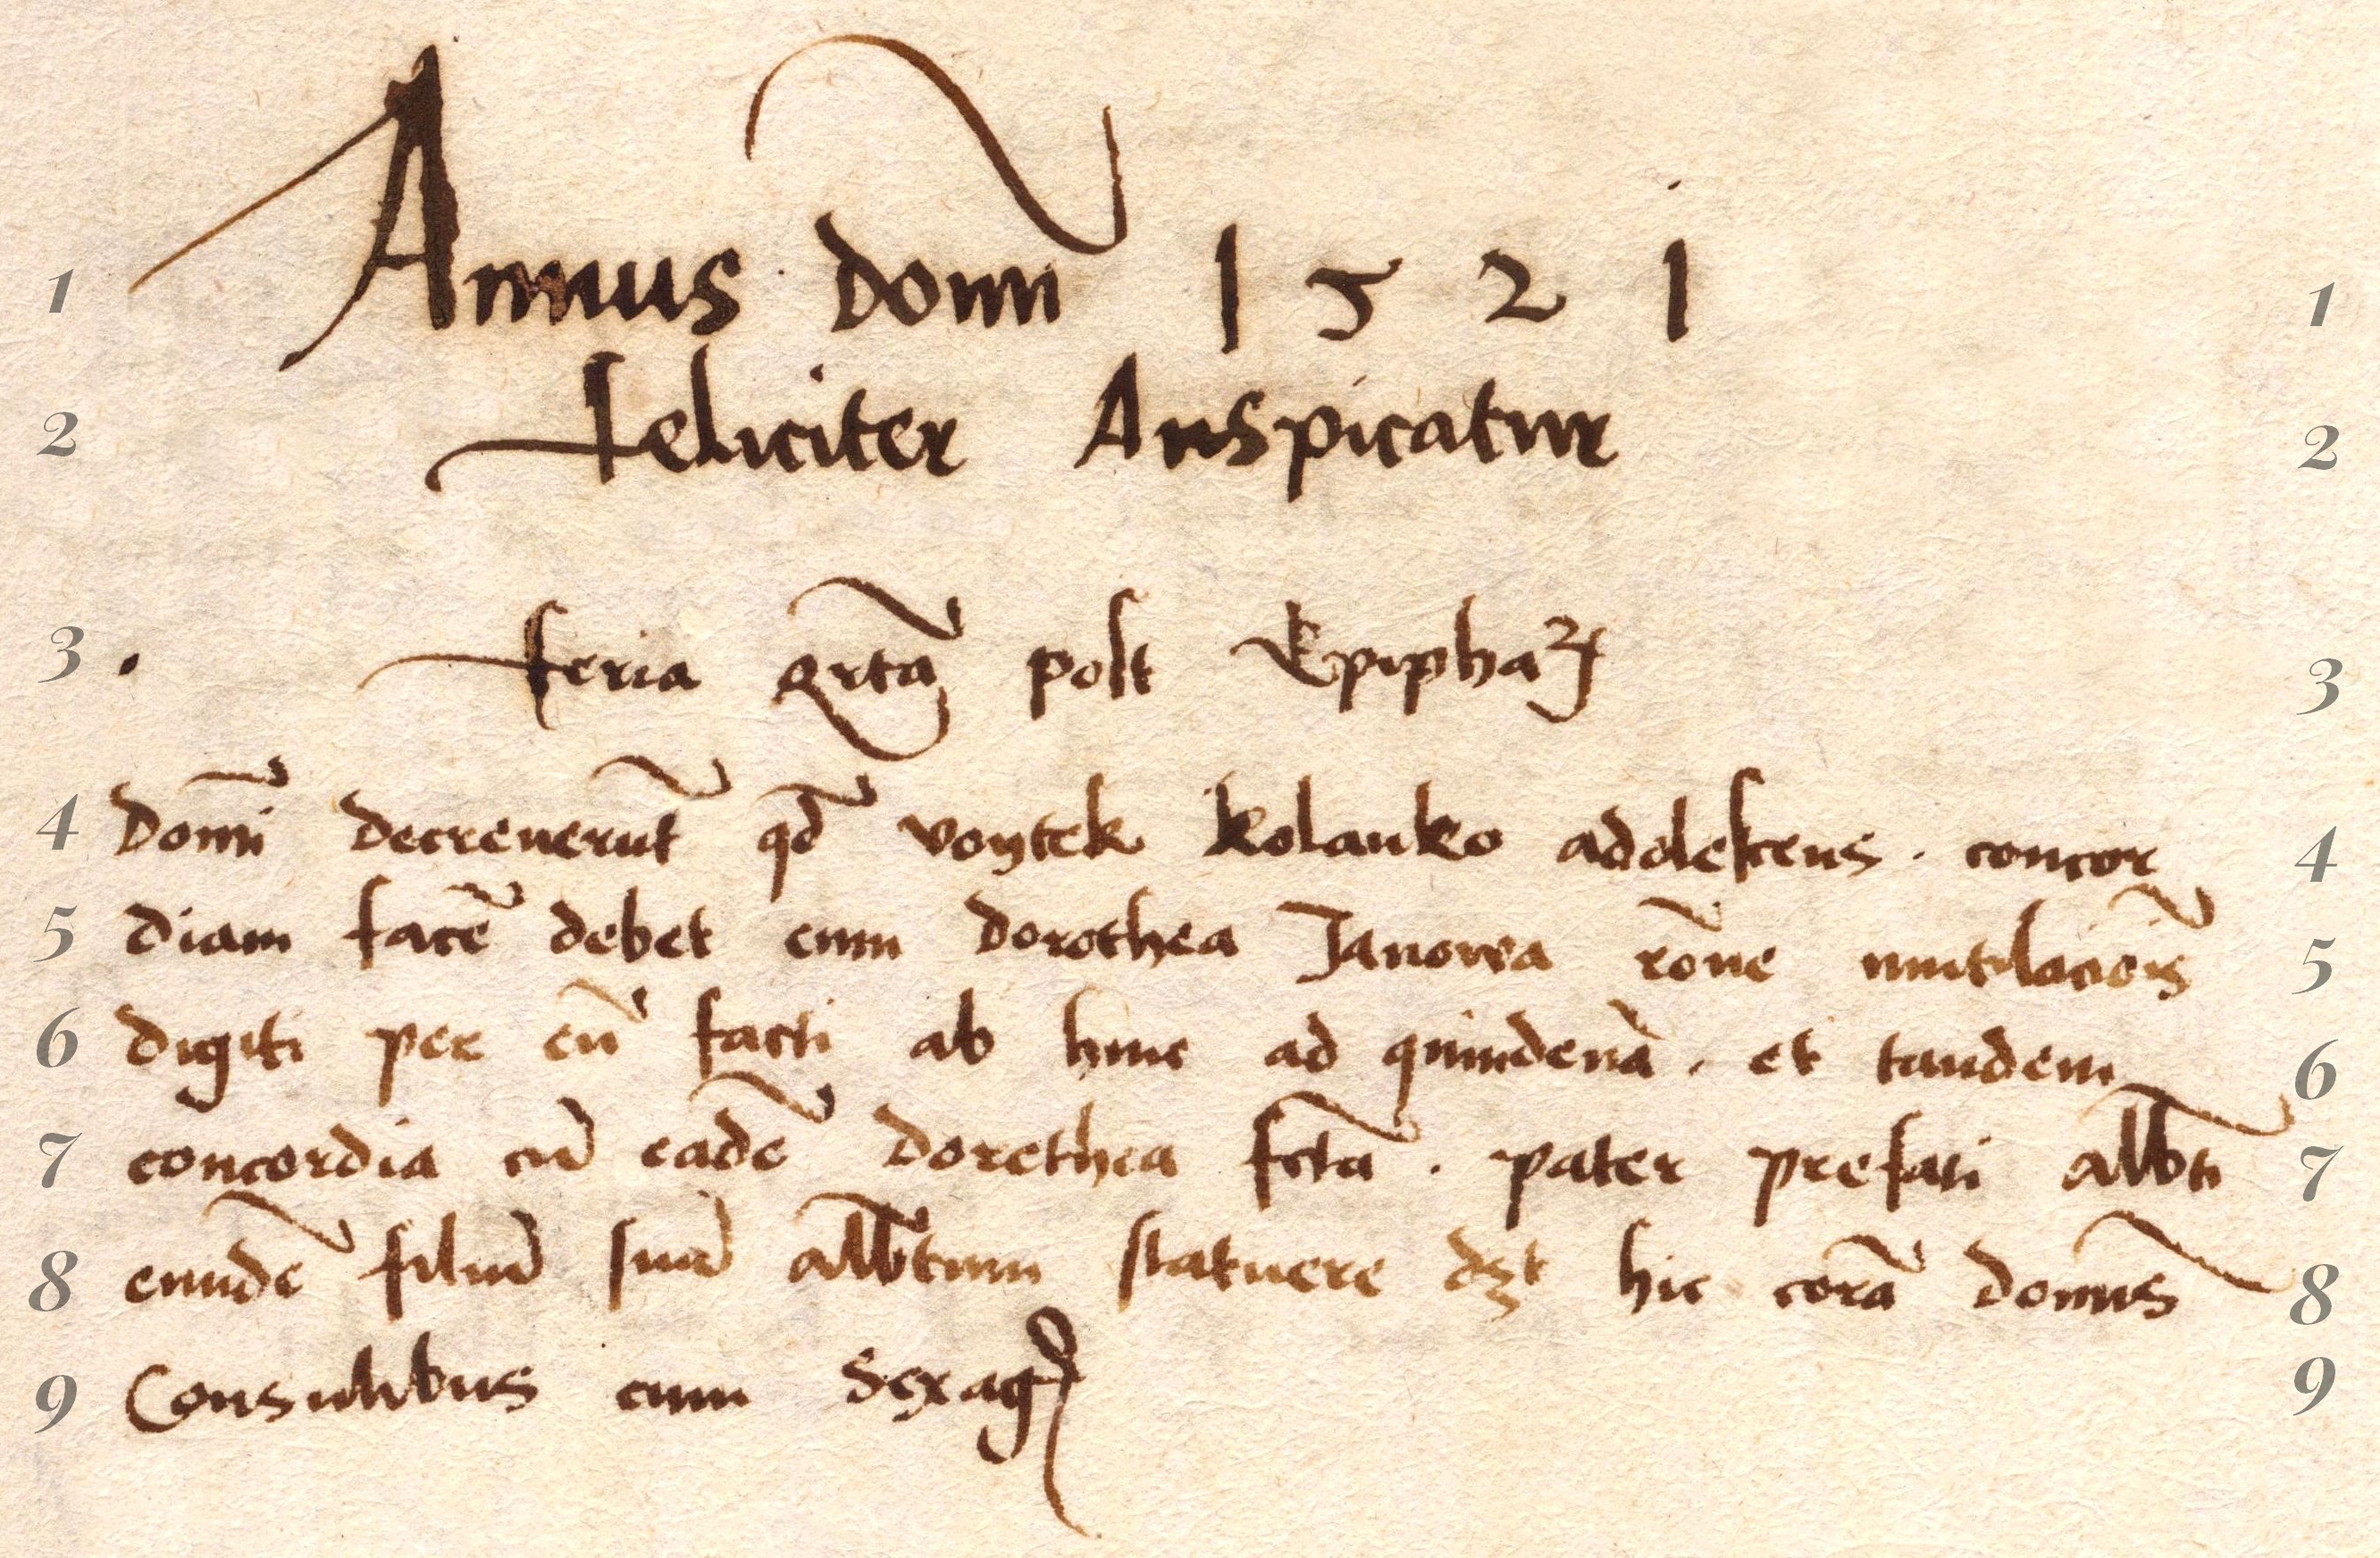 1 Annus domī 1521 1
2 feliciter Auspicatur 2
3 feria qrta post Epipha 3
4 Domī decreuerūt qd voytek kolanko adolescens . concor 4
5 diam facē debet cum dorothea Janowa rōne mutilaciōis 5
6 digiti per eū facti ab hinc ad quindenā . et tandem 6
7 concordia cū eadē dorethea fctā . pater prefati albti 7
8 eundē filiū suū albtum statuere dꝫt hic corā domīs 8
9 Consulibus cum Sexag 9